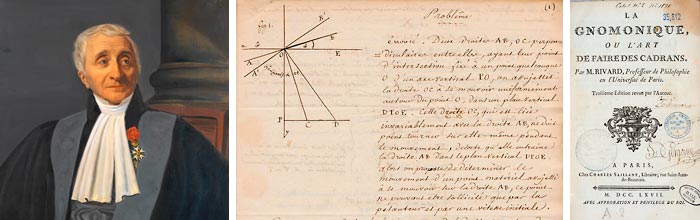 (1)
Problème
fig. 1.
Enoncé. Deux droites AB, OC, perpen-
diculaires entre elles, ayant leur point
d'intersection fixé à un point quelconque
O d'un axe vertical YO, on assujettit
la droite OC à se mouvoir uniformément
autour du point O, dans un plan vertical
Cette droite OC, qui est liée
invariablement avec la droite AB, ne doit
point tourner sur elle-même pendant
le mouvement, de sorte qu'elle entraîne
la droite AB dans le plan vertical
alors on propose de déterminer le
mouvement d'un point matériel assujetti
à se mouvoir sur la droite AB, ce point
ne pouvant être sollicité que par la
pesanteur et par une vitesse initiale.
B'
B
A
A'
O
E
P
C
D
y
35,612
LA
GNOMONIQUE,
OU L'ART
DE FAIRE DES CADRANS.
Par M. RIVARD, Professeur de Philosophie
en l'Université de Paris.
Troisième Edition revue par l'Auteur.
A PARIS,
Chez CHARLES SAILLANT, Libraire, rue Saint-Jean-
de-Beauvais.
M. DCC. LXVII.
AVEC APPROBATION ET PRIVILEGE DU ROI.